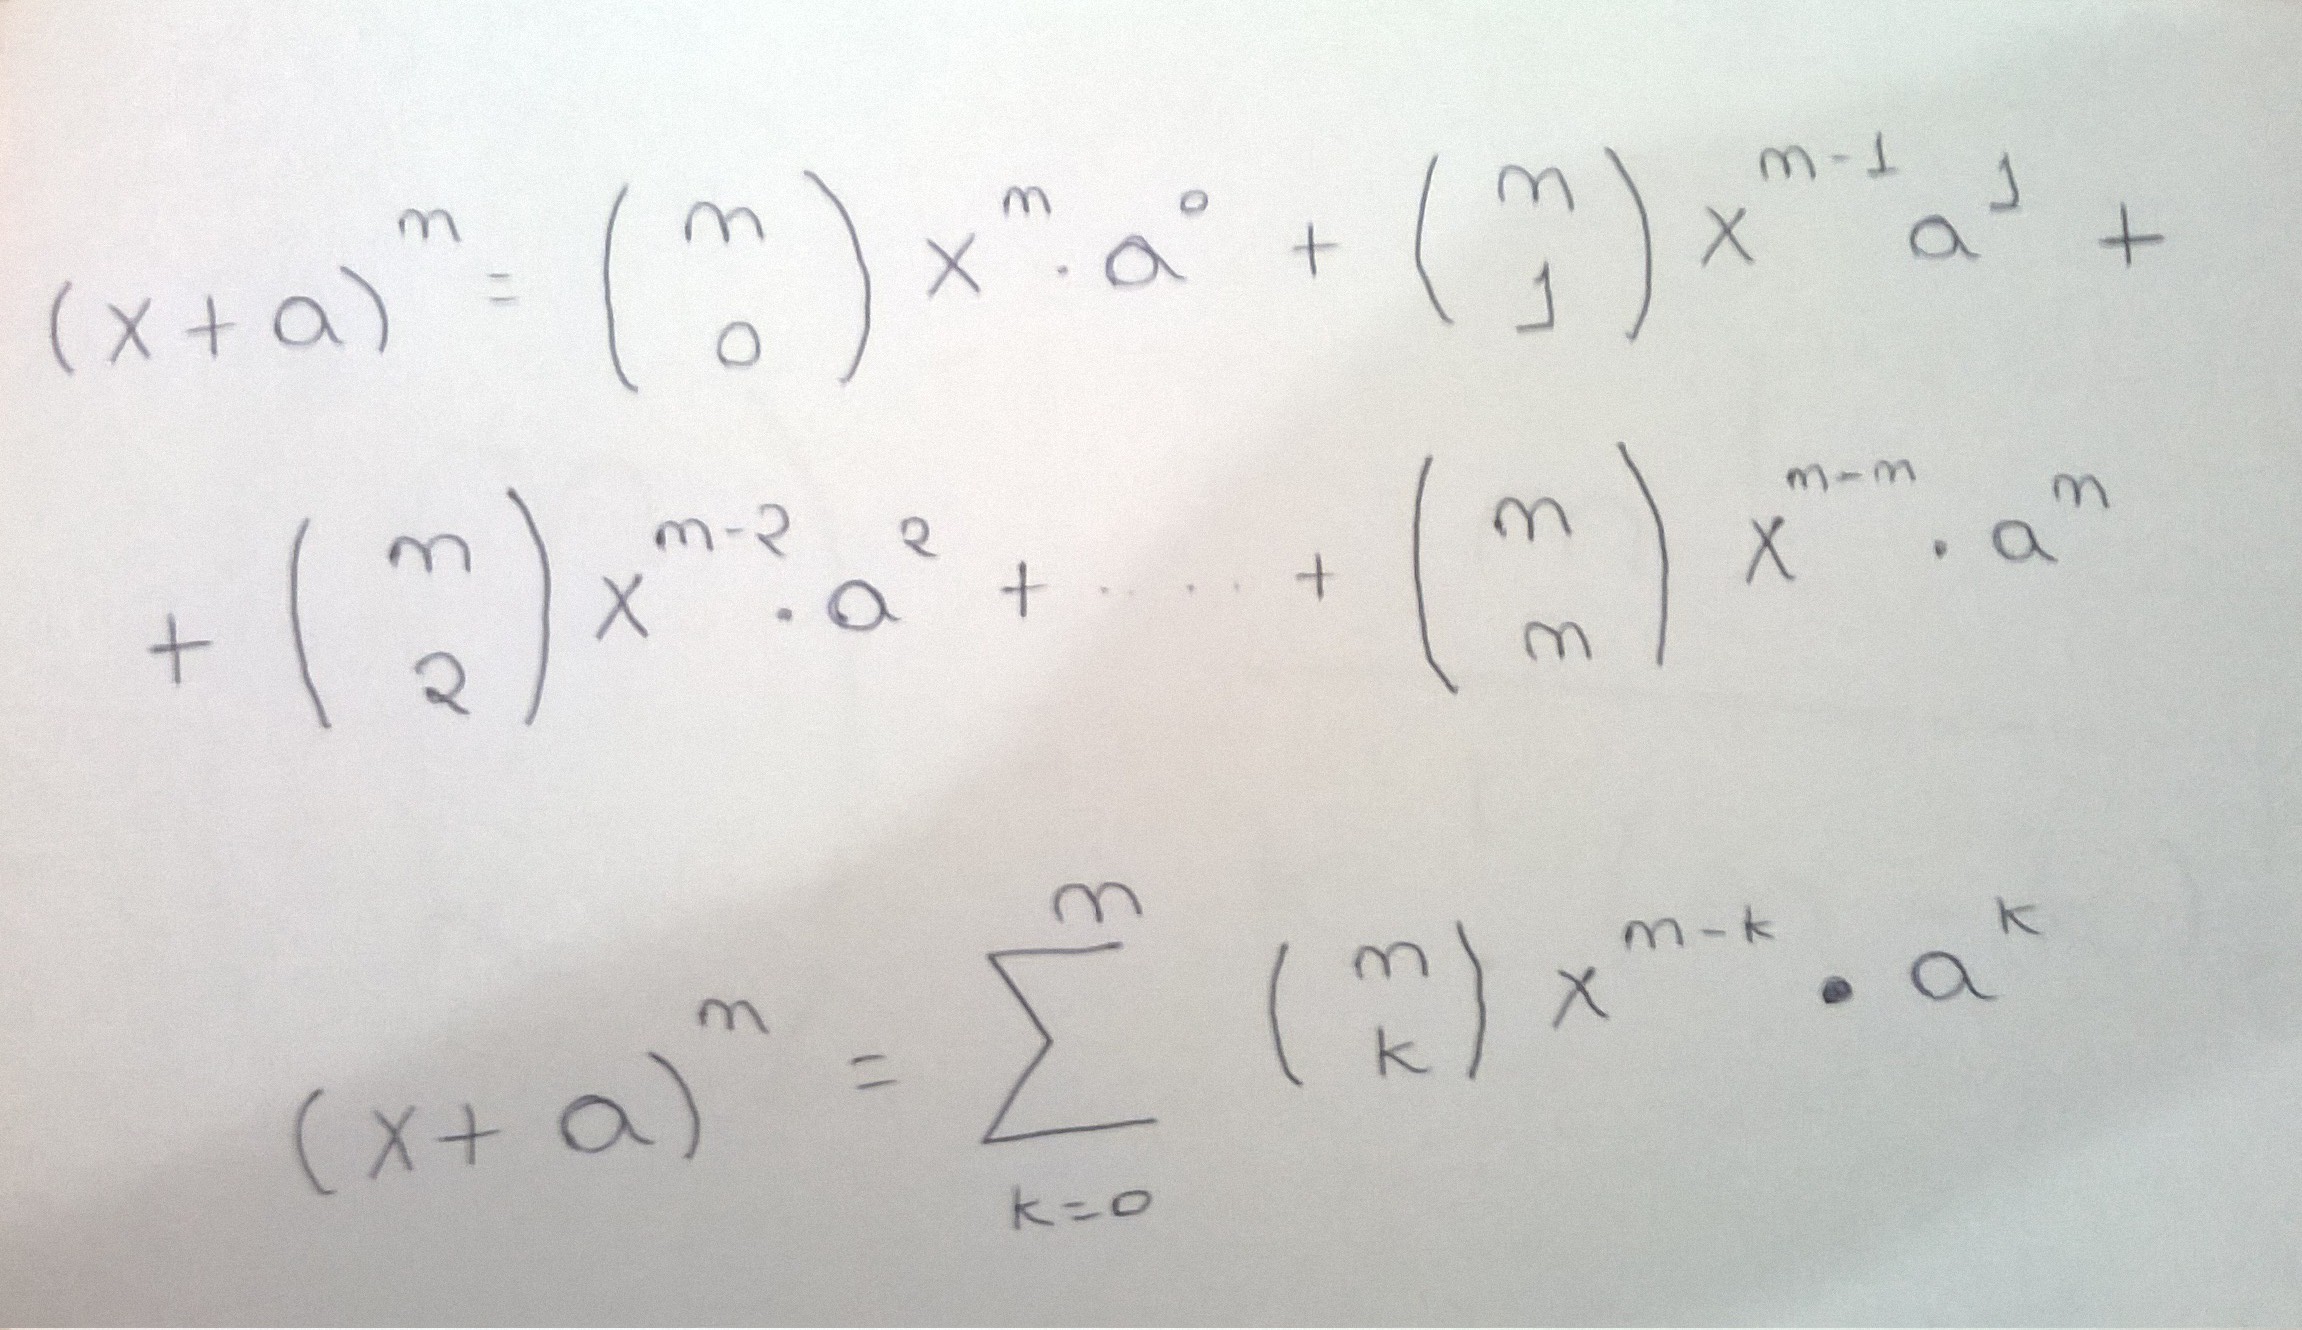 (x+a)^m = (m 0) x^m . a^0 + (m 1) x^{m-1} a^1 +
+ (m 2) x^{m-2} . a^2 + ..... + (m m) x^{m-m} . a^m
(x+a)^m = ∑_{k=0}^{m} (m k) x^{m-k} . a^k